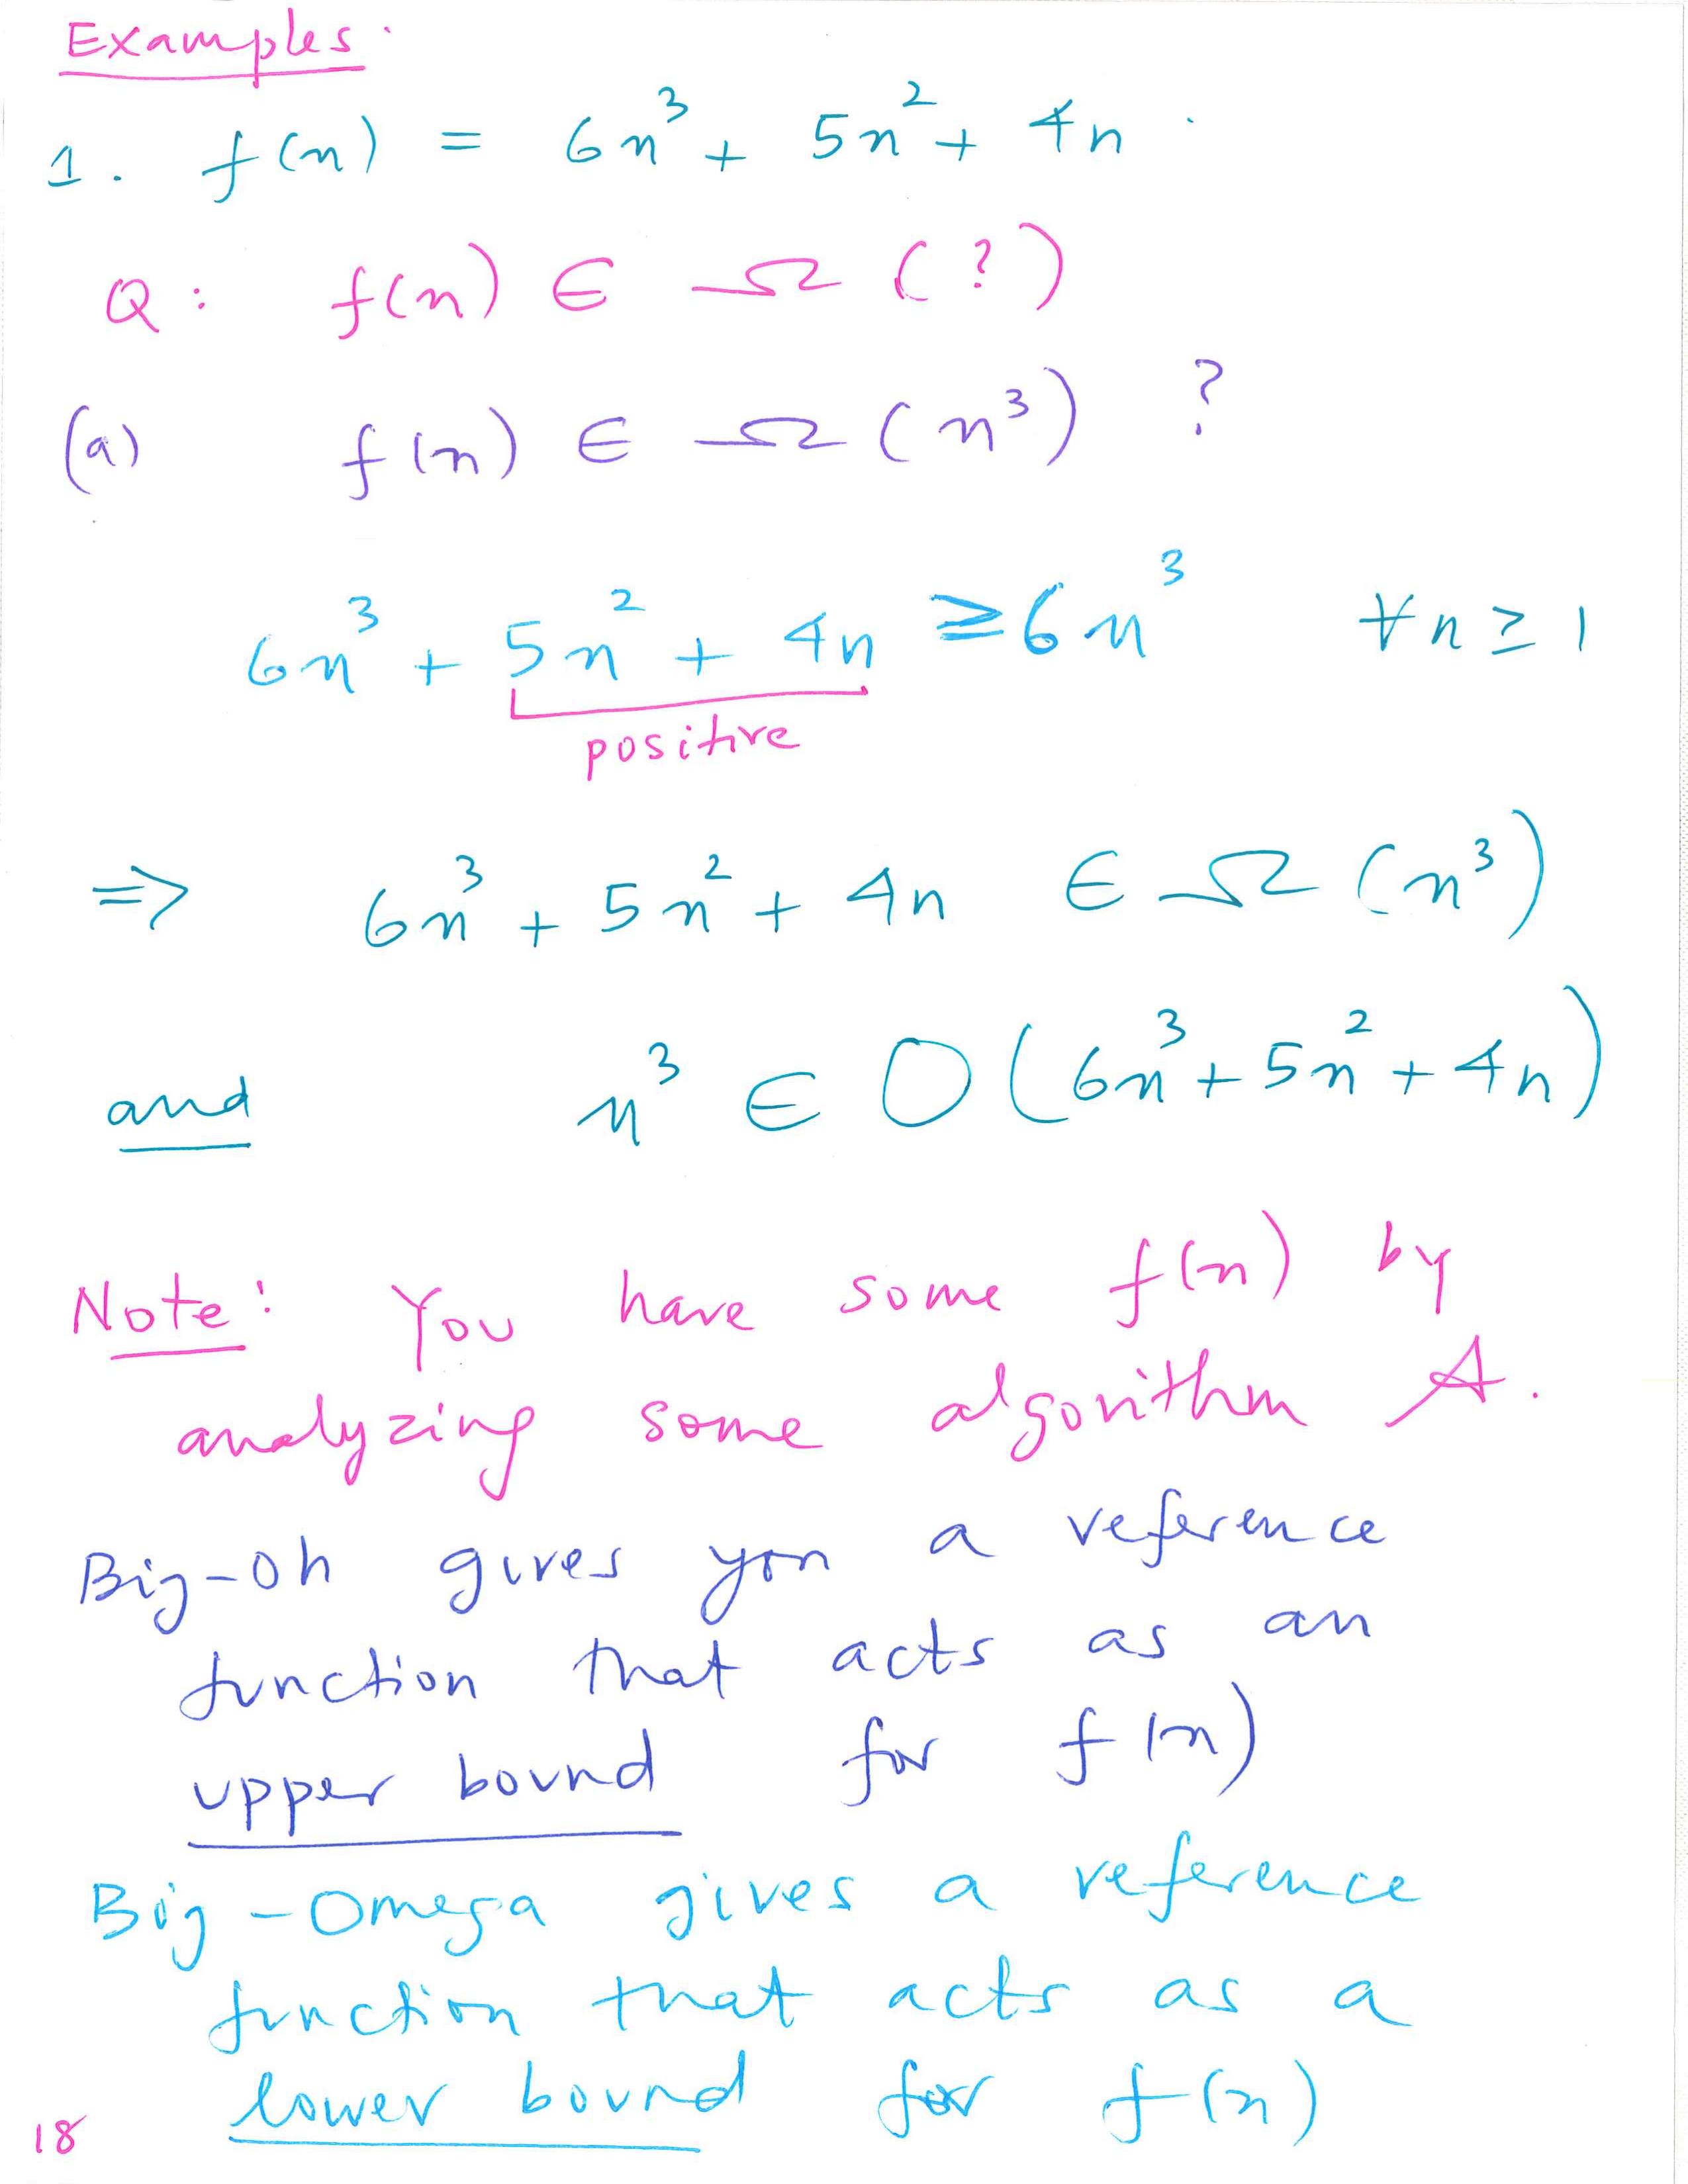 Examples.
1. f(n) = 6n³ + 5n² + 4n.
Q: f(n) ∈ Ω (?)
(a) f(n) ∈ Ω (n³) ?
6n³ + 5n² + 4n ≥ 6n³ ∀n ≥ 1
positive
⇒ 6n³ + 5n² + 4n ∈ Ω (n³)
and n³ ∈ O(6n³ + 5n² + 4n)
Note: You have some f(n) by
analyzing some algorithm A.
Big-Oh gives you a reference
function that acts as an
upper bound for f(n)
Big-Omega gives a reference
function that acts as a
lower bound for f(n)
18